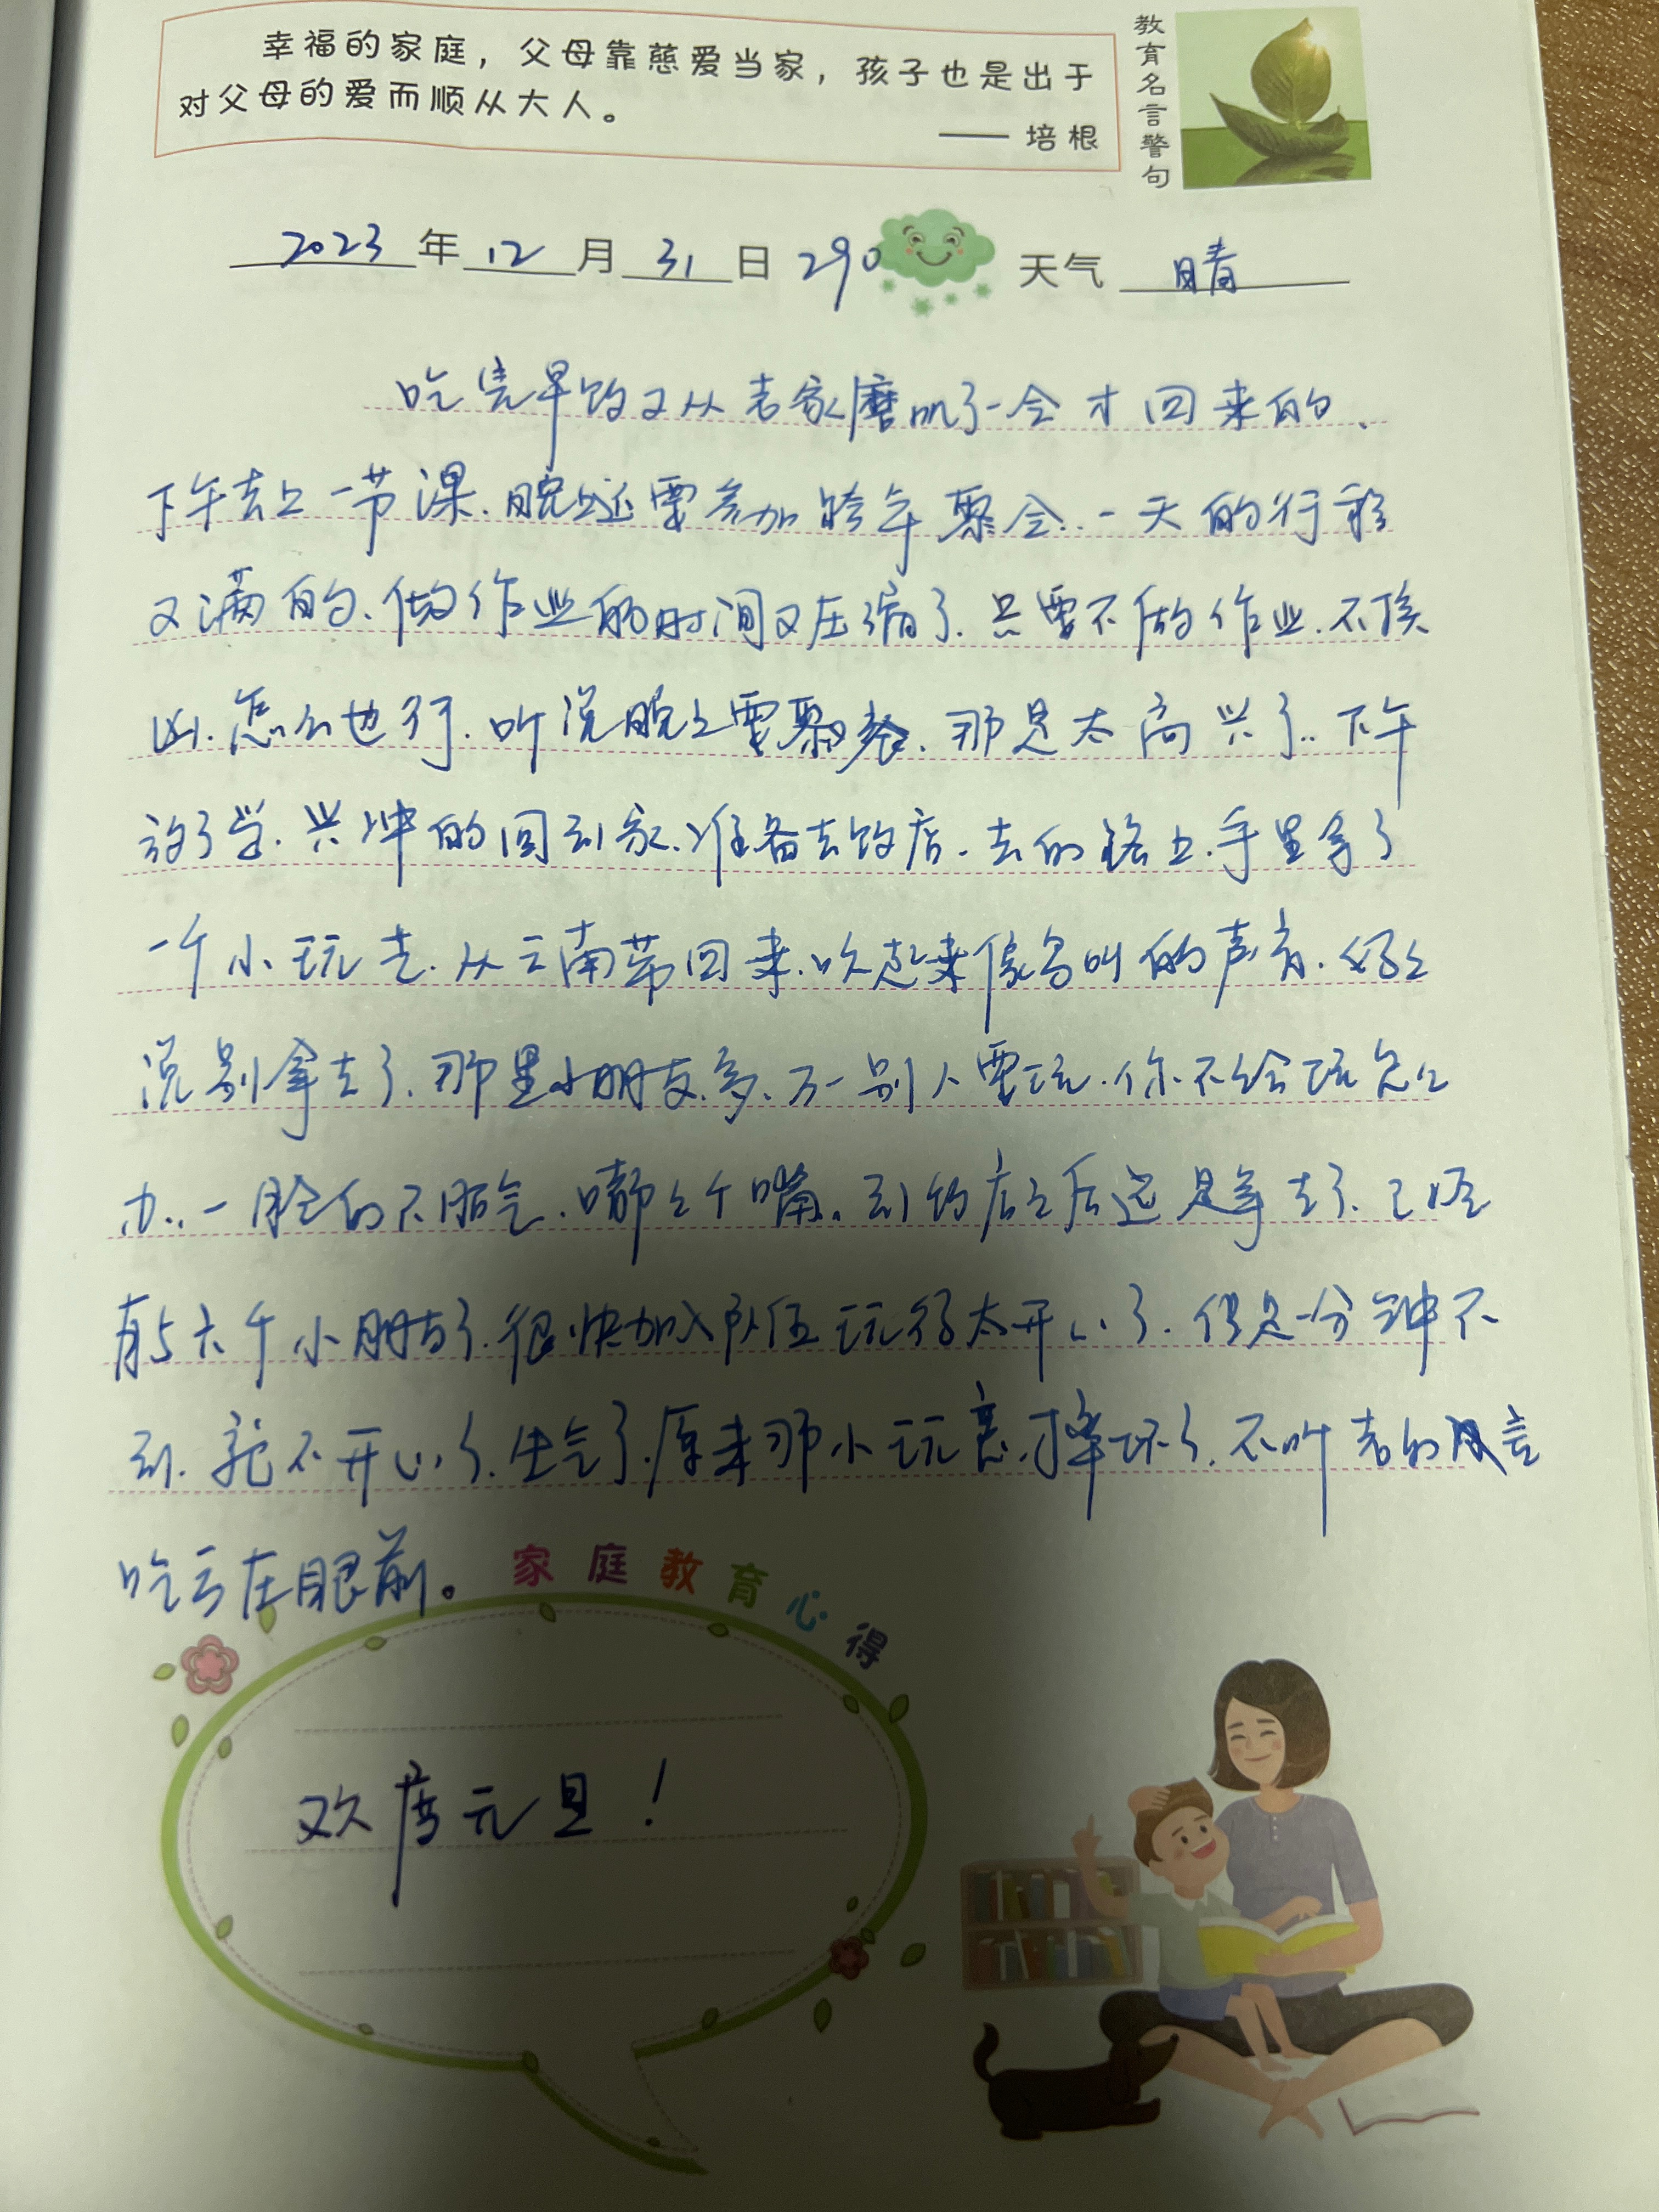 幸福的家庭，父母靠慈爱当家，孩子也是出于
对父母的爱而顺从大人。
—— 培根
教育名言警句
2023年12月31日 290 天气 晴
吃完早饭又从老家磨叽了一会才回来的、
下午去上一节课.晚上还要参加跨年聚会..一天的行程
又满的、做作业的时间又压缩了.只要不做作业.不挨
凶.怎么也行.听说晚上要聚餐.那是太高兴了..下午
放了学.兴冲的回到家.准备去饭店.去的路上.手里拿了
一个小玩意.从云南带回来.吹起来像鸟叫的声音.
说别拿去了.那里小朋友多.万一别人要玩.你不给玩怎么
办..一脸的不服气.嘟个嘴。到饭店之后还是拿去了.已经
有5六个小朋友了.很快加入队伍玩得太开心了.但是一分钟不
到.就不开心了.生气了.原来那小玩意.摔坏了.不听老的言
吃亏在眼前。
家庭教育心得
欢度元旦！